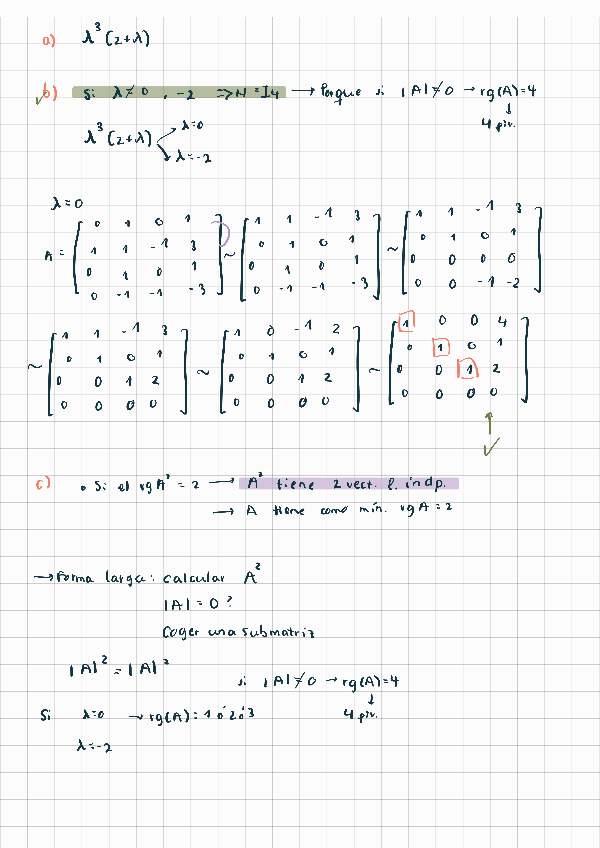 a) λ³(2+λ)
b) Si λ≠0, -2 => N=I4 → Porque si |A|≠0 → rg(A)=4
↓
4 piv.
λ³(2+λ) → λ=0
→ λ=-2
λ=0
A = [0 1 0 1] ~ [1 1 -1 3] ~ [1 1 -1 3]
[1 1 -1 3] [0 1 0 1] [0 1 0 1]
[0 1 0 1] [0 1 0 1] [0 0 0 0]
[0 -1 -1 -3] [0 -1 -1 -3] [0 0 -1 -2]
~ [1 1 -1 3] ~ [1 0 -1 2] ~ [1 0 0 4]
[0 1 0 1] [0 1 0 1] [0 1 0 1]
[0 0 1 2] [0 0 1 2] [0 0 1 2]
[0 0 0 0] [0 0 0 0] [0 0 0 0]
↑
✓
c) • Si el rg A² = 2 → A² tiene 2 vect. l. indp.
→ A tiene como mín. rg A = 2
→ Forma larga: calcular A²
|A| = 0 ?
Coger una submatriz
|A|² = |A|²
si |A|≠0 → rg(A)=4
↓
4 piv.
Si λ=0 → rg(A): 1 ó 2 ó 3
λ=-2